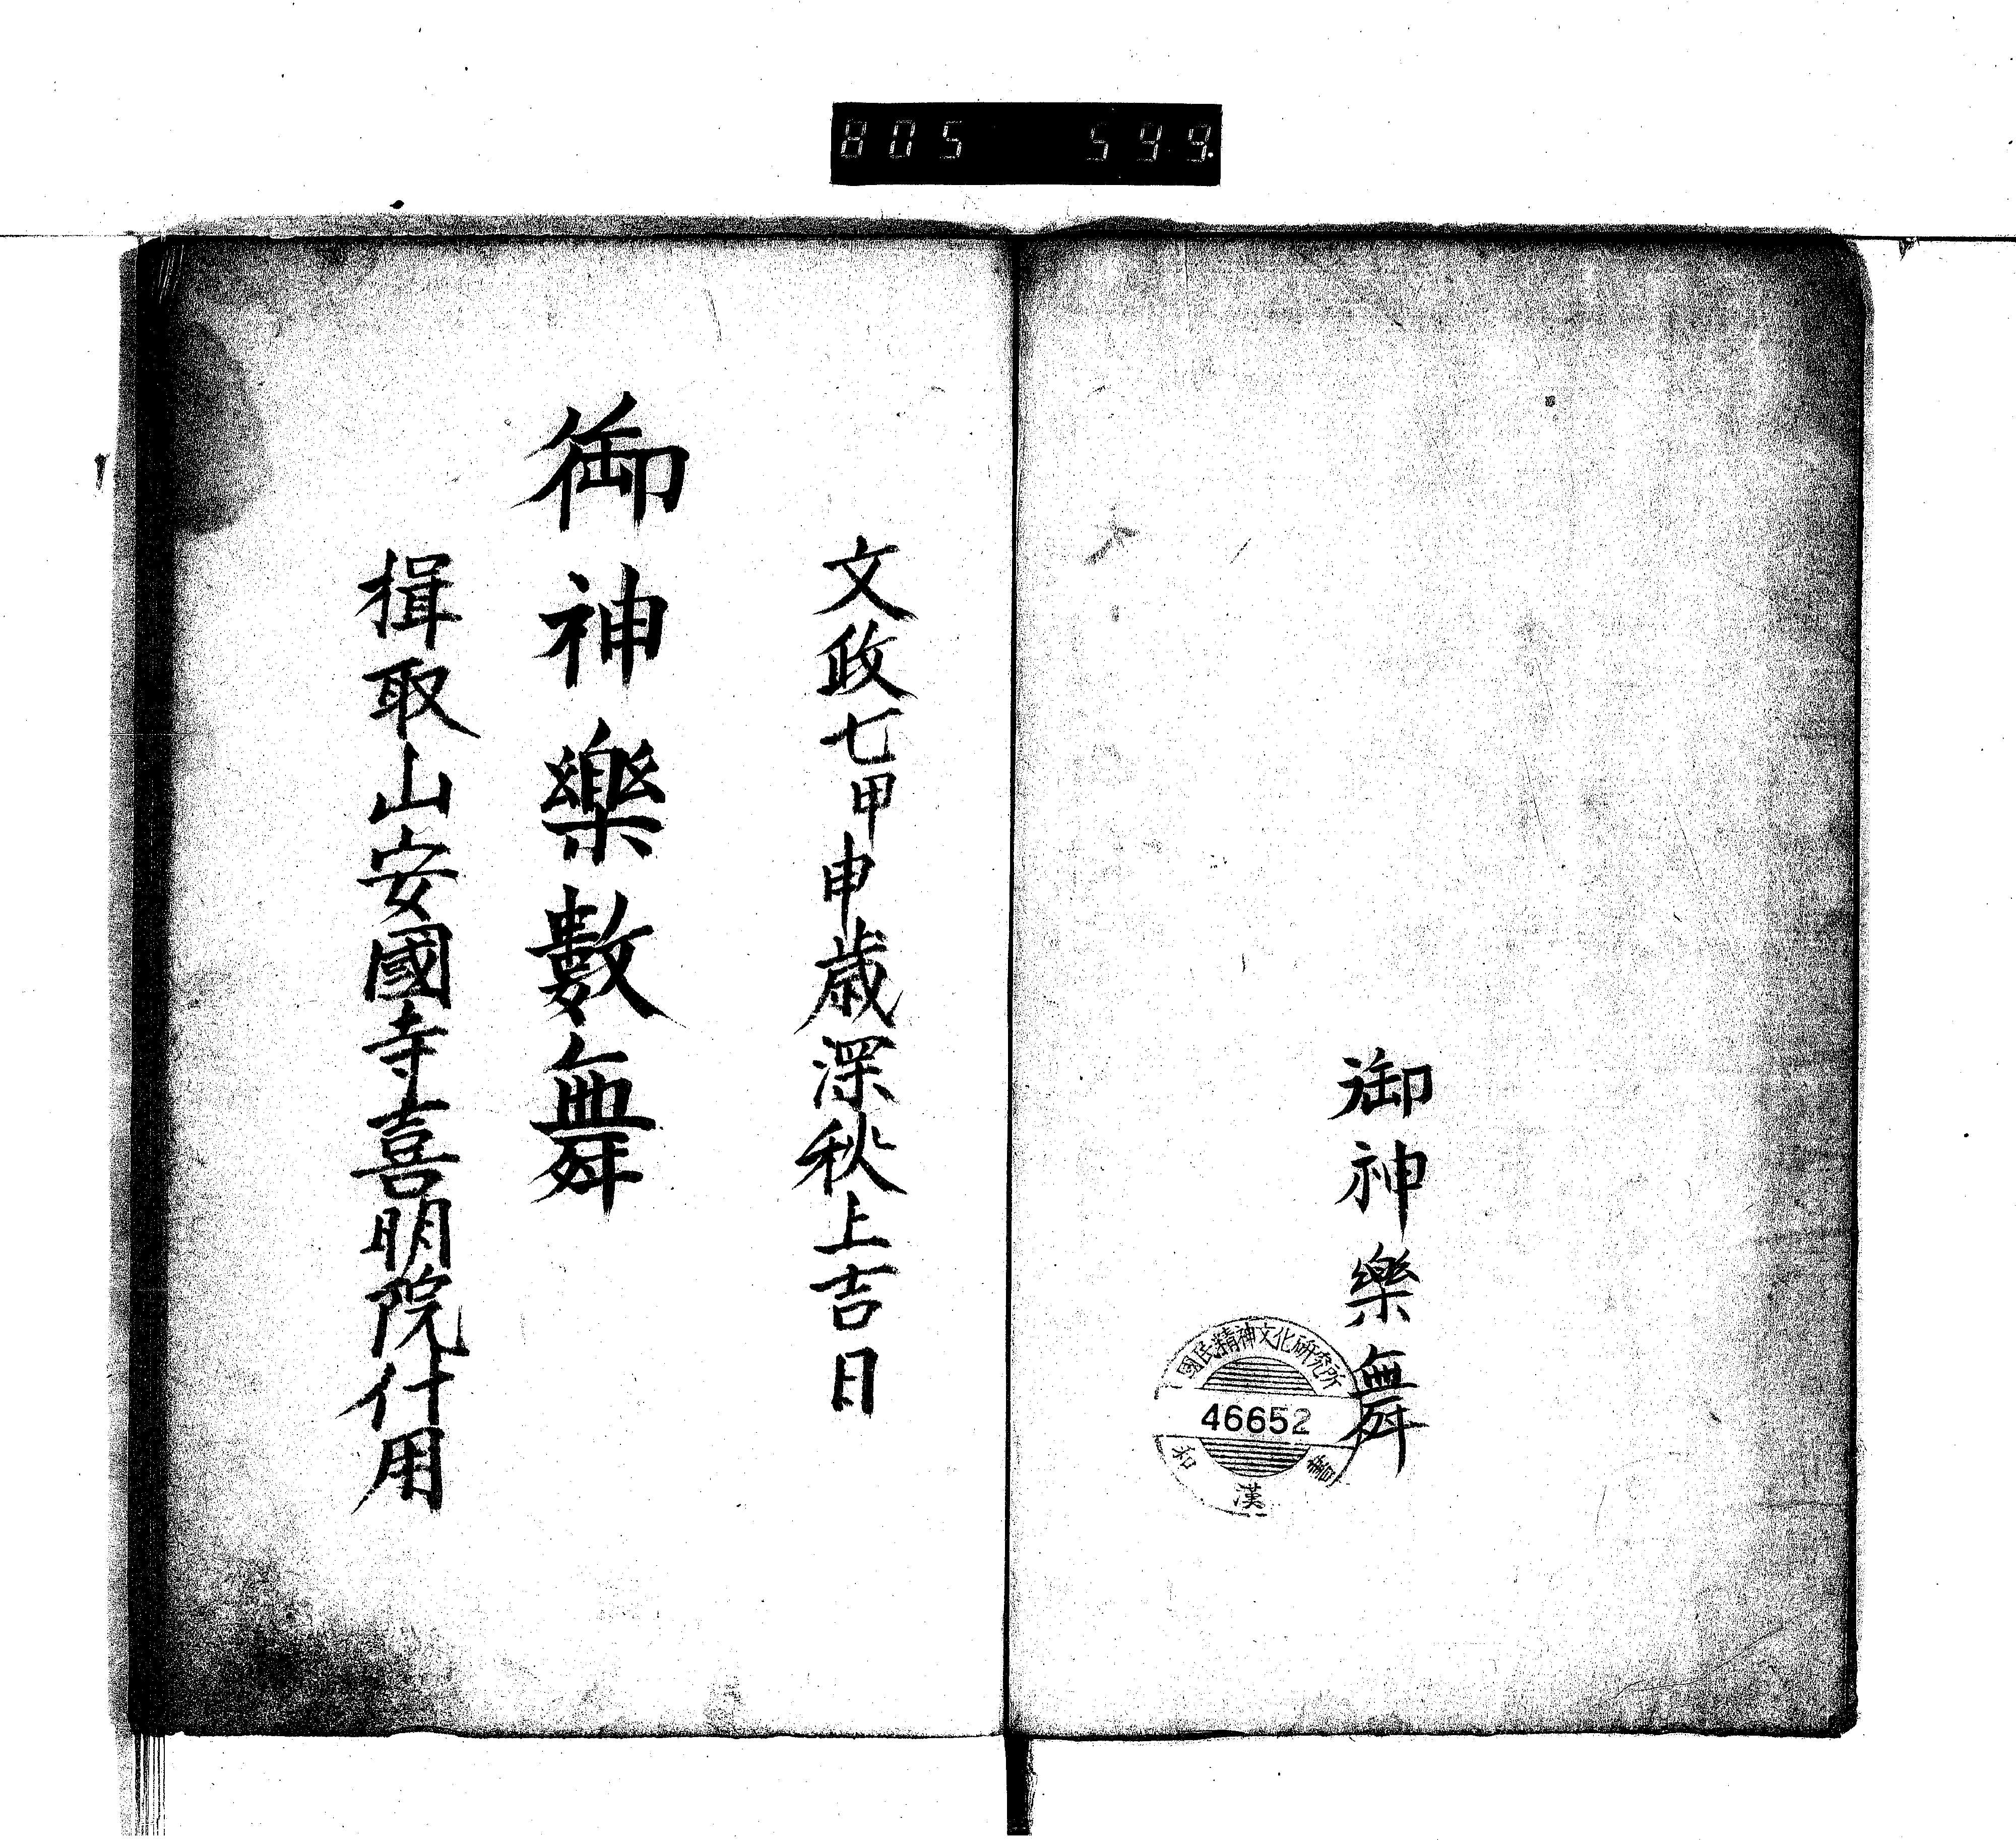 805 599.
御神樂舞
國民精神文化研究所
46652
和漢書
文政七甲申歳深秋上吉日
御神樂數舞
揖取山安國寺喜明院什用